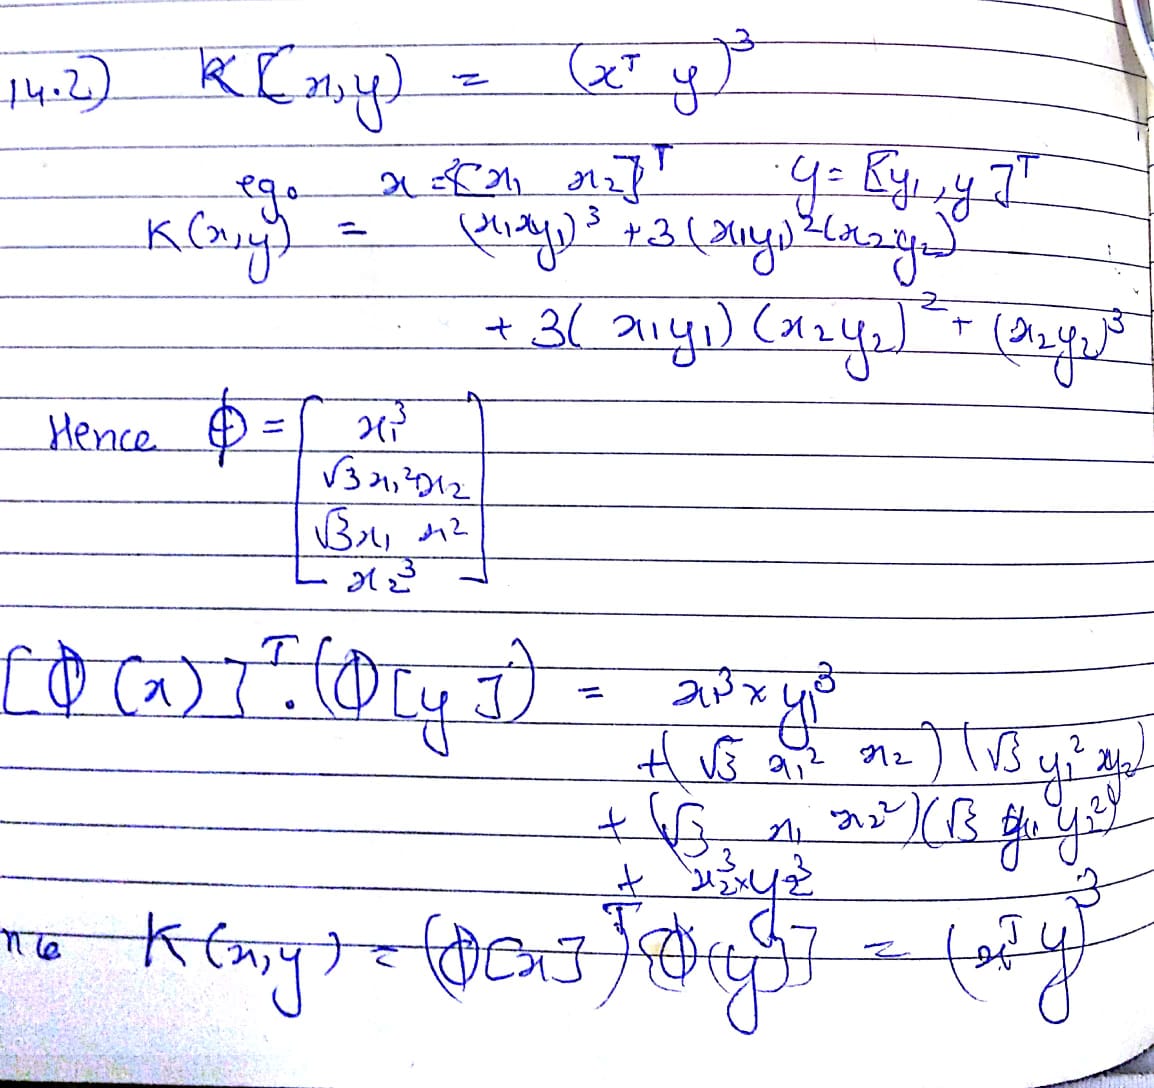 14.2) K[x,y) = (xᵀ y)³
eg. x = [x₁ x₂]ᵀ y = [y₁, y]ᵀ
K(x,y) = (x₁xy₁)³ + 3(x₁y₁)²(x₂y₂)
+ 3(x₁y₁)(x₂y₂)² + (x₂y₂)³
Hence Φ = [ x₁³
√3x₁²x₂
√3x₁ x²
x₂³ ]
[Φ(x)]ᵀ.(Φ[y]) = x₁³ x y₁³
+( √3 x₁² x₂ ) (√3 y₁² xy₂)
+ (√3 x₁ x₂²)(√3 y₁ y₂²)
+ x₂³xy₂³
nce K(x,y) = (Φ[x])ᵀ[Φ(y)] = (xᵀy)³